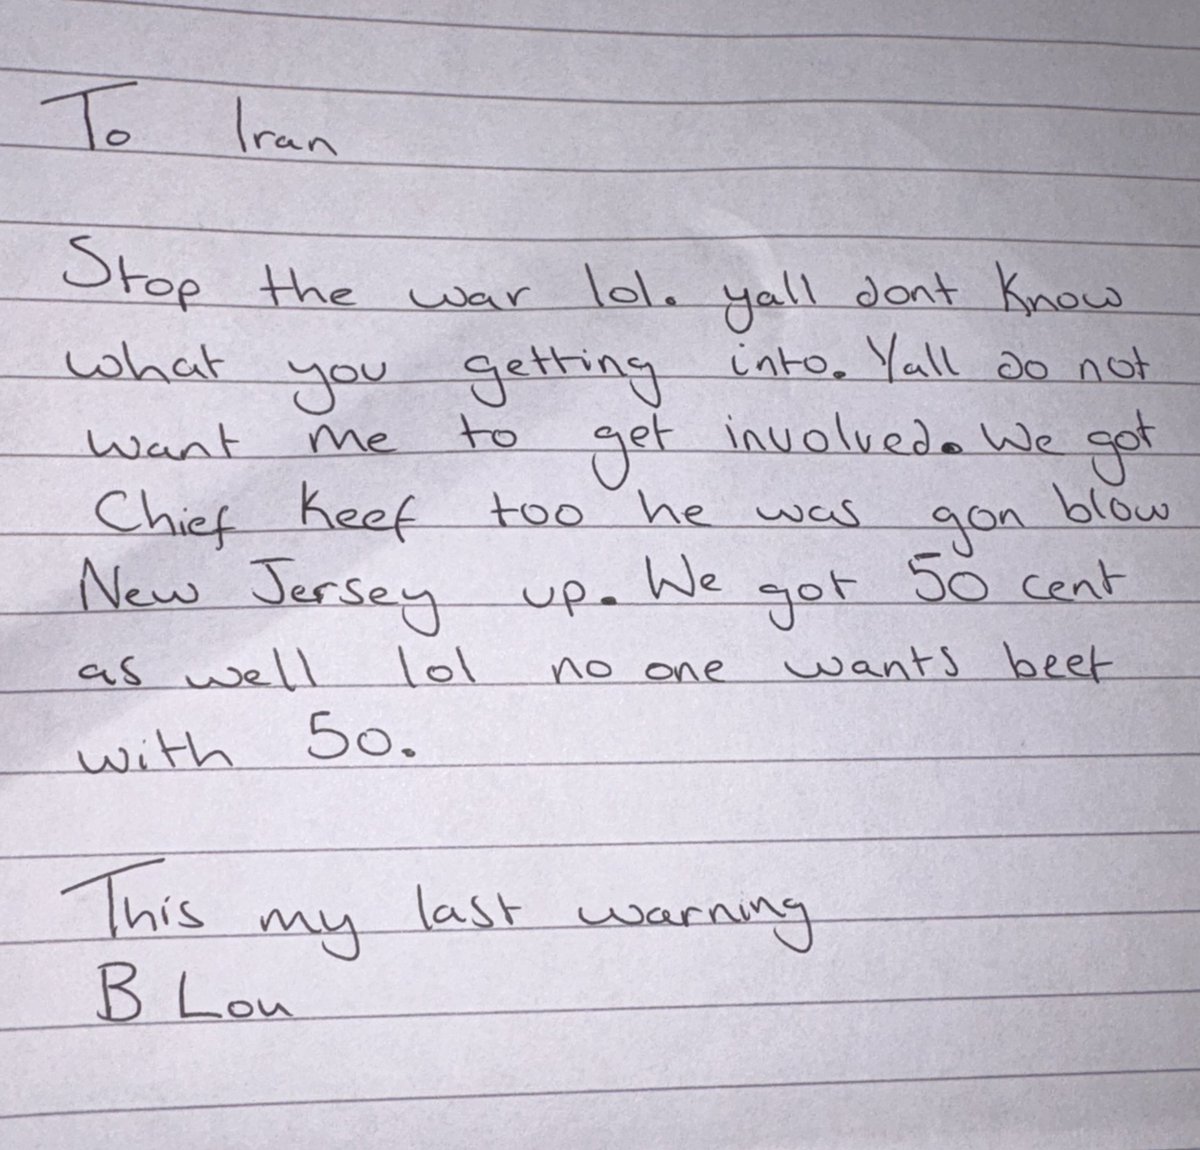 To Iran
Stop the war lol. yall dont know
what you getting into. Yall do not
want me to get involved. We got
Chief Keef too he was gon blow
New Jersey up. We got 50 cent
as well lol no one wants beef
with 50.
This my last warning
B Lou